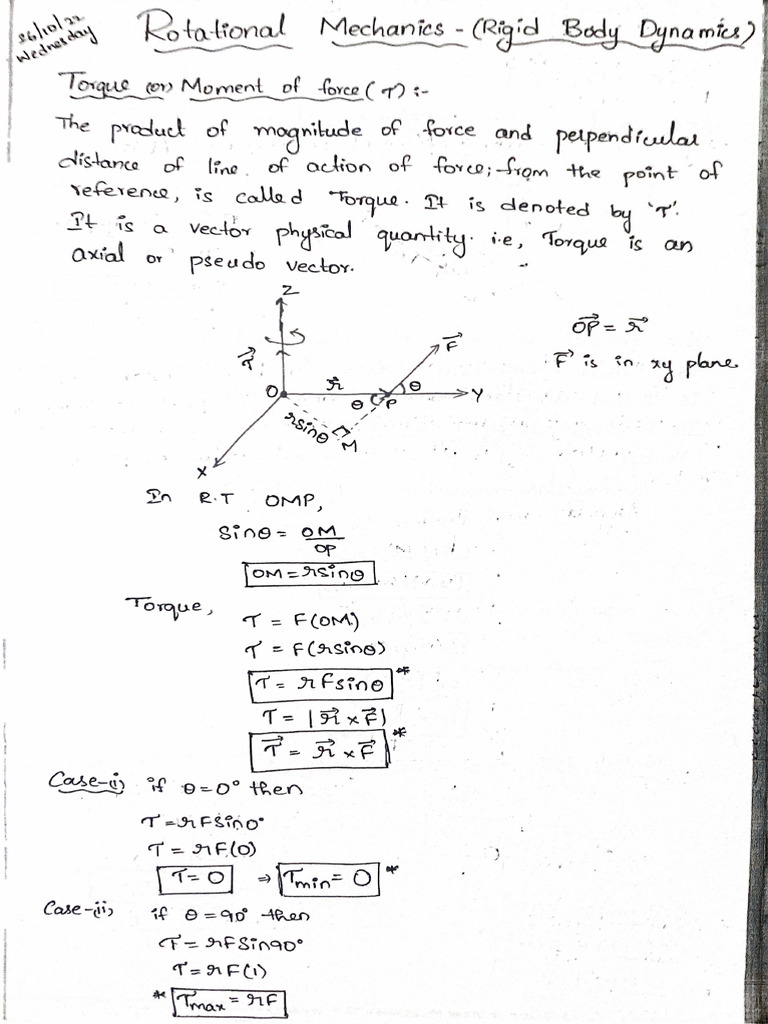 26/10/22
Wednesday
Rotational Mechanics - (Rigid Body Dynamics)
Torque (or) Moment of force (τ) :-
The product of magnitude of force and perpendicular
distance of line of action of force; from the point of
reference, is called Torque. It is denoted by 'τ'.
It is a vector physical quantity. i.e, Torque is an
axial or pseudo vector.
Z
τ⃗
F⃗
O
r⃗
θ
P
θ
Y
rsinθ
M
X
OP⃗ = r⃗
F⃗ is in xy plane
In R.T OMP,
Sinθ = OM/OP
OM = rsinθ
Torque,
τ = F(OM)
τ = F(rsinθ)
τ = rFsinθ *
τ = |r⃗ × F⃗|
τ⃗ = r⃗ × F⃗ *
Case-(i) if θ = 0° then
τ = rFsin0°
τ = rF(0)
τ = 0 ⇒ τmin = 0 *
Case-(ii) if θ = 90° then
τ = rFsin90°
τ = rF(1)
* τmax = rF